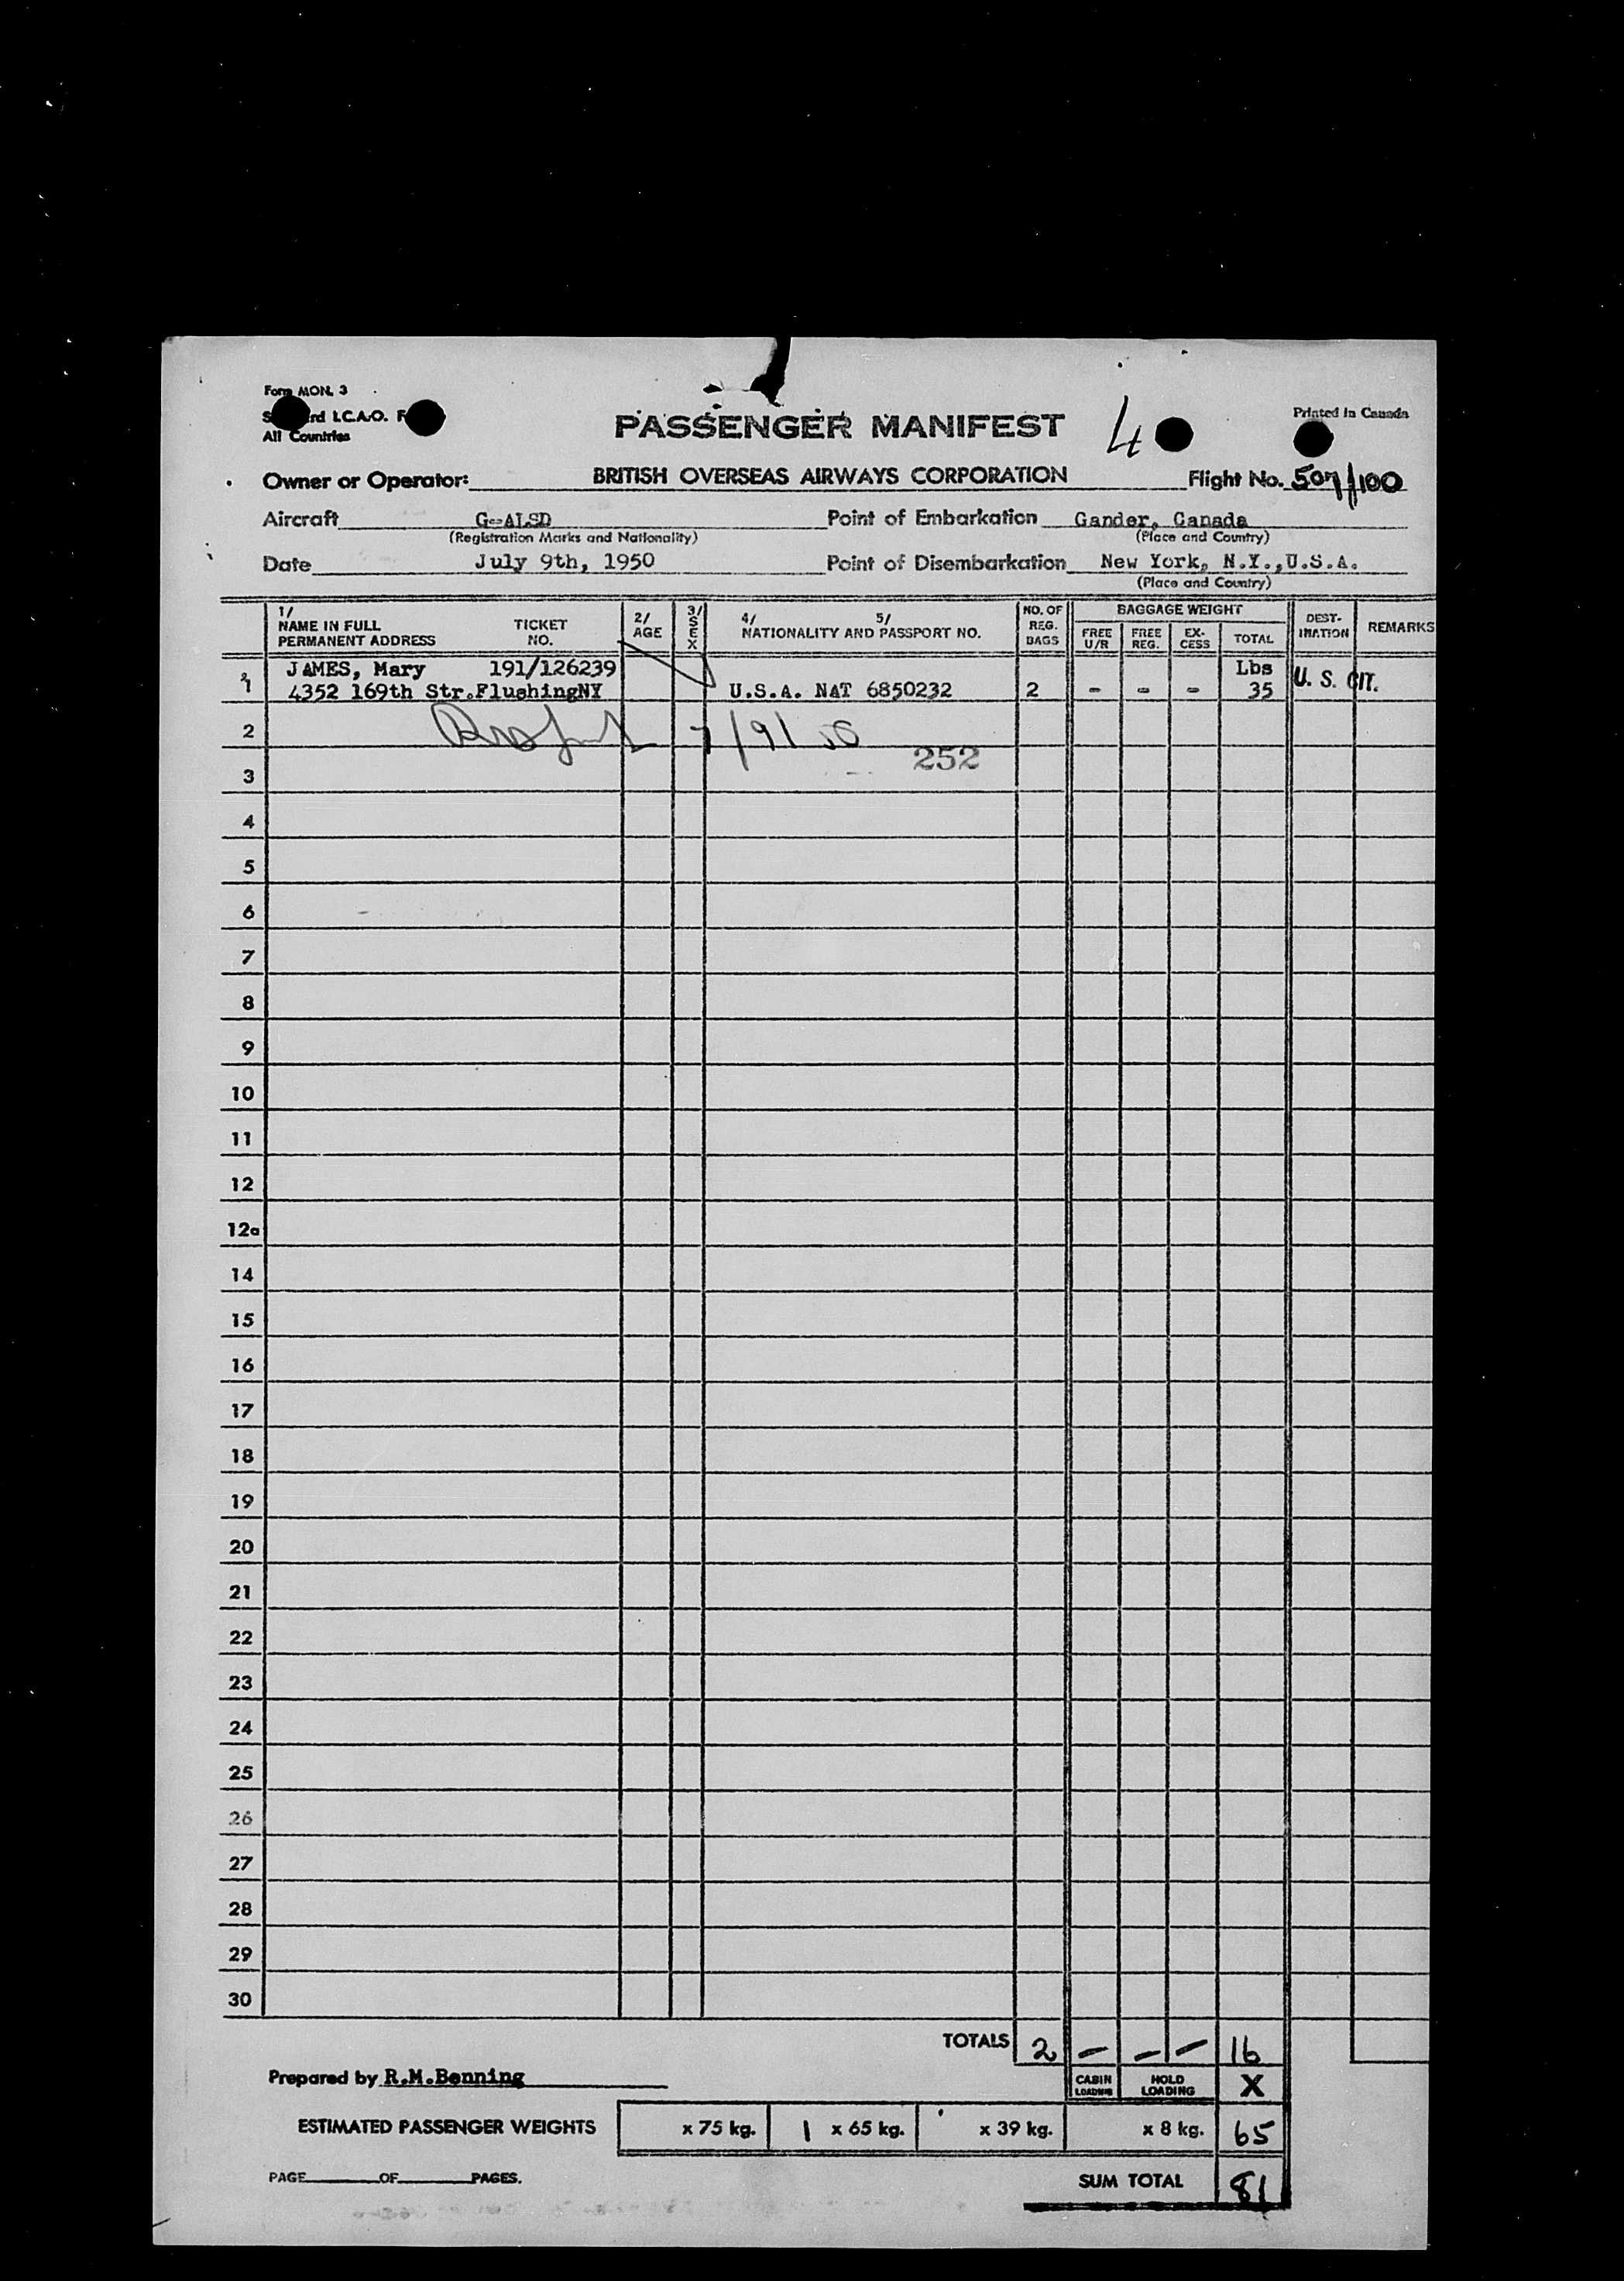 Form MON. 3
Printed in Canada
All Countries
PASSENGER MANIFEST 4
Owner or Operator: BRITISH OVERSEAS AIRWAYS CORPORATION Flight No. 507/100
Aircraft G-ALSD Point of Embarkation Gander, Canada
(Registration Marks and Nationality) (Place and Country)
Date July 9th, 1950 Point of Disembarkation New York, N.Y.,U.S.A.
(Place and Country)
1/ NAME IN FULL PERMANENT ADDRESS TICKET NO. 2/ AGE 3/ SEX 4/ 5/ NATIONALITY AND PASSPORT NO. NO. OF REG. BAGS BAGGAGE WEIGHT FREE U/R FREE REG. EX-CESS TOTAL DEST-INATION REMARKS
JAMES, Mary 191/126239 Lbs
1 4352 169th Str.FlushingNY U.S.A. NAT 6850232 2 - - - 35 U. S. CIT.
2 7/9/50
252
3
4
5
6
7
8
9
10
11
12
12a
14
15
16
17
18
19
20
21
22
23
24
25
26
27
28
29
30
TOTALS 2 - - - 16
Prepared by R.M.Benning CABIN LOADING HOLD LOADING X
ESTIMATED PASSENGER WEIGHTS x 75 kg. 1 x 65 kg. x 39 kg. x 8 kg. 65
PAGE OF PAGES. SUM TOTAL 81